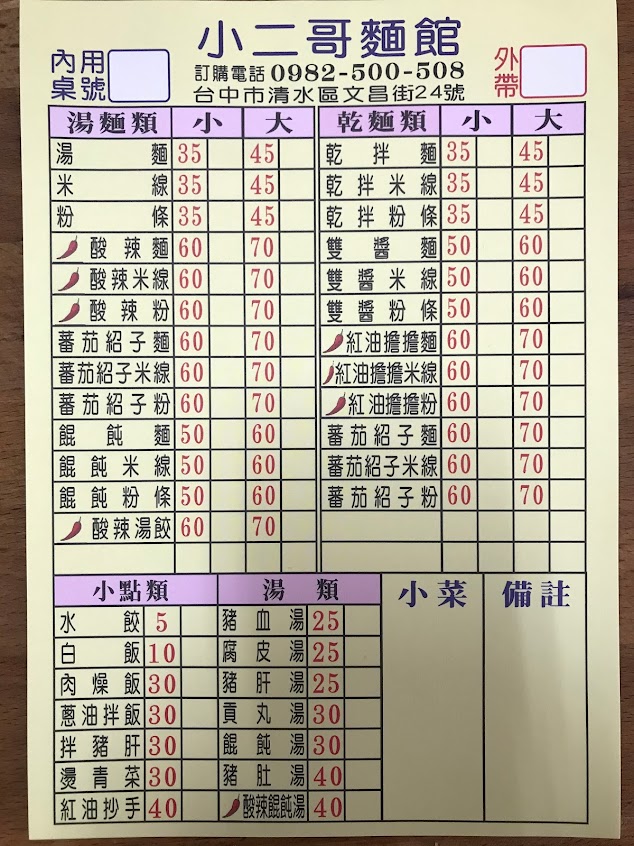 小二哥麵館
內用桌號
訂購電話 0982-500-508
台中市清水區文昌街24號
外帶
湯麵類 小 大
湯麵 35 45
米線 35 45
粉條 35 45
酸辣麵 60 70
酸辣米線 60 70
酸辣粉 60 70
蕃茄紹子麵 60 70
蕃茄紹子米線 60 70
蕃茄紹子粉 60 70
餛飩麵 50 60
餛飩米線 50 60
餛飩粉條 50 60
酸辣湯餃 60 70
乾麵類 小 大
乾拌麵 35 45
乾拌米線 35 45
乾拌粉條 35 45
雙醬麵 50 60
雙醬米線 50 60
雙醬粉條 50 60
紅油擔擔麵 60 70
紅油擔擔米線 60 70
紅油擔擔粉 60 70
蕃茄紹子麵 60 70
蕃茄紹子米線 60 70
蕃茄紹子粉 60 70
小點類
水餃 5
白飯 10
肉燥飯 30
蔥油拌飯 30
拌豬肝 30
燙青菜 30
紅油抄手 40
湯類
豬血湯 25
腐皮湯 25
豬肝湯 25
貢丸湯 30
餛飩湯 30
豬肚湯 40
酸辣餛飩湯 40
小菜
備註